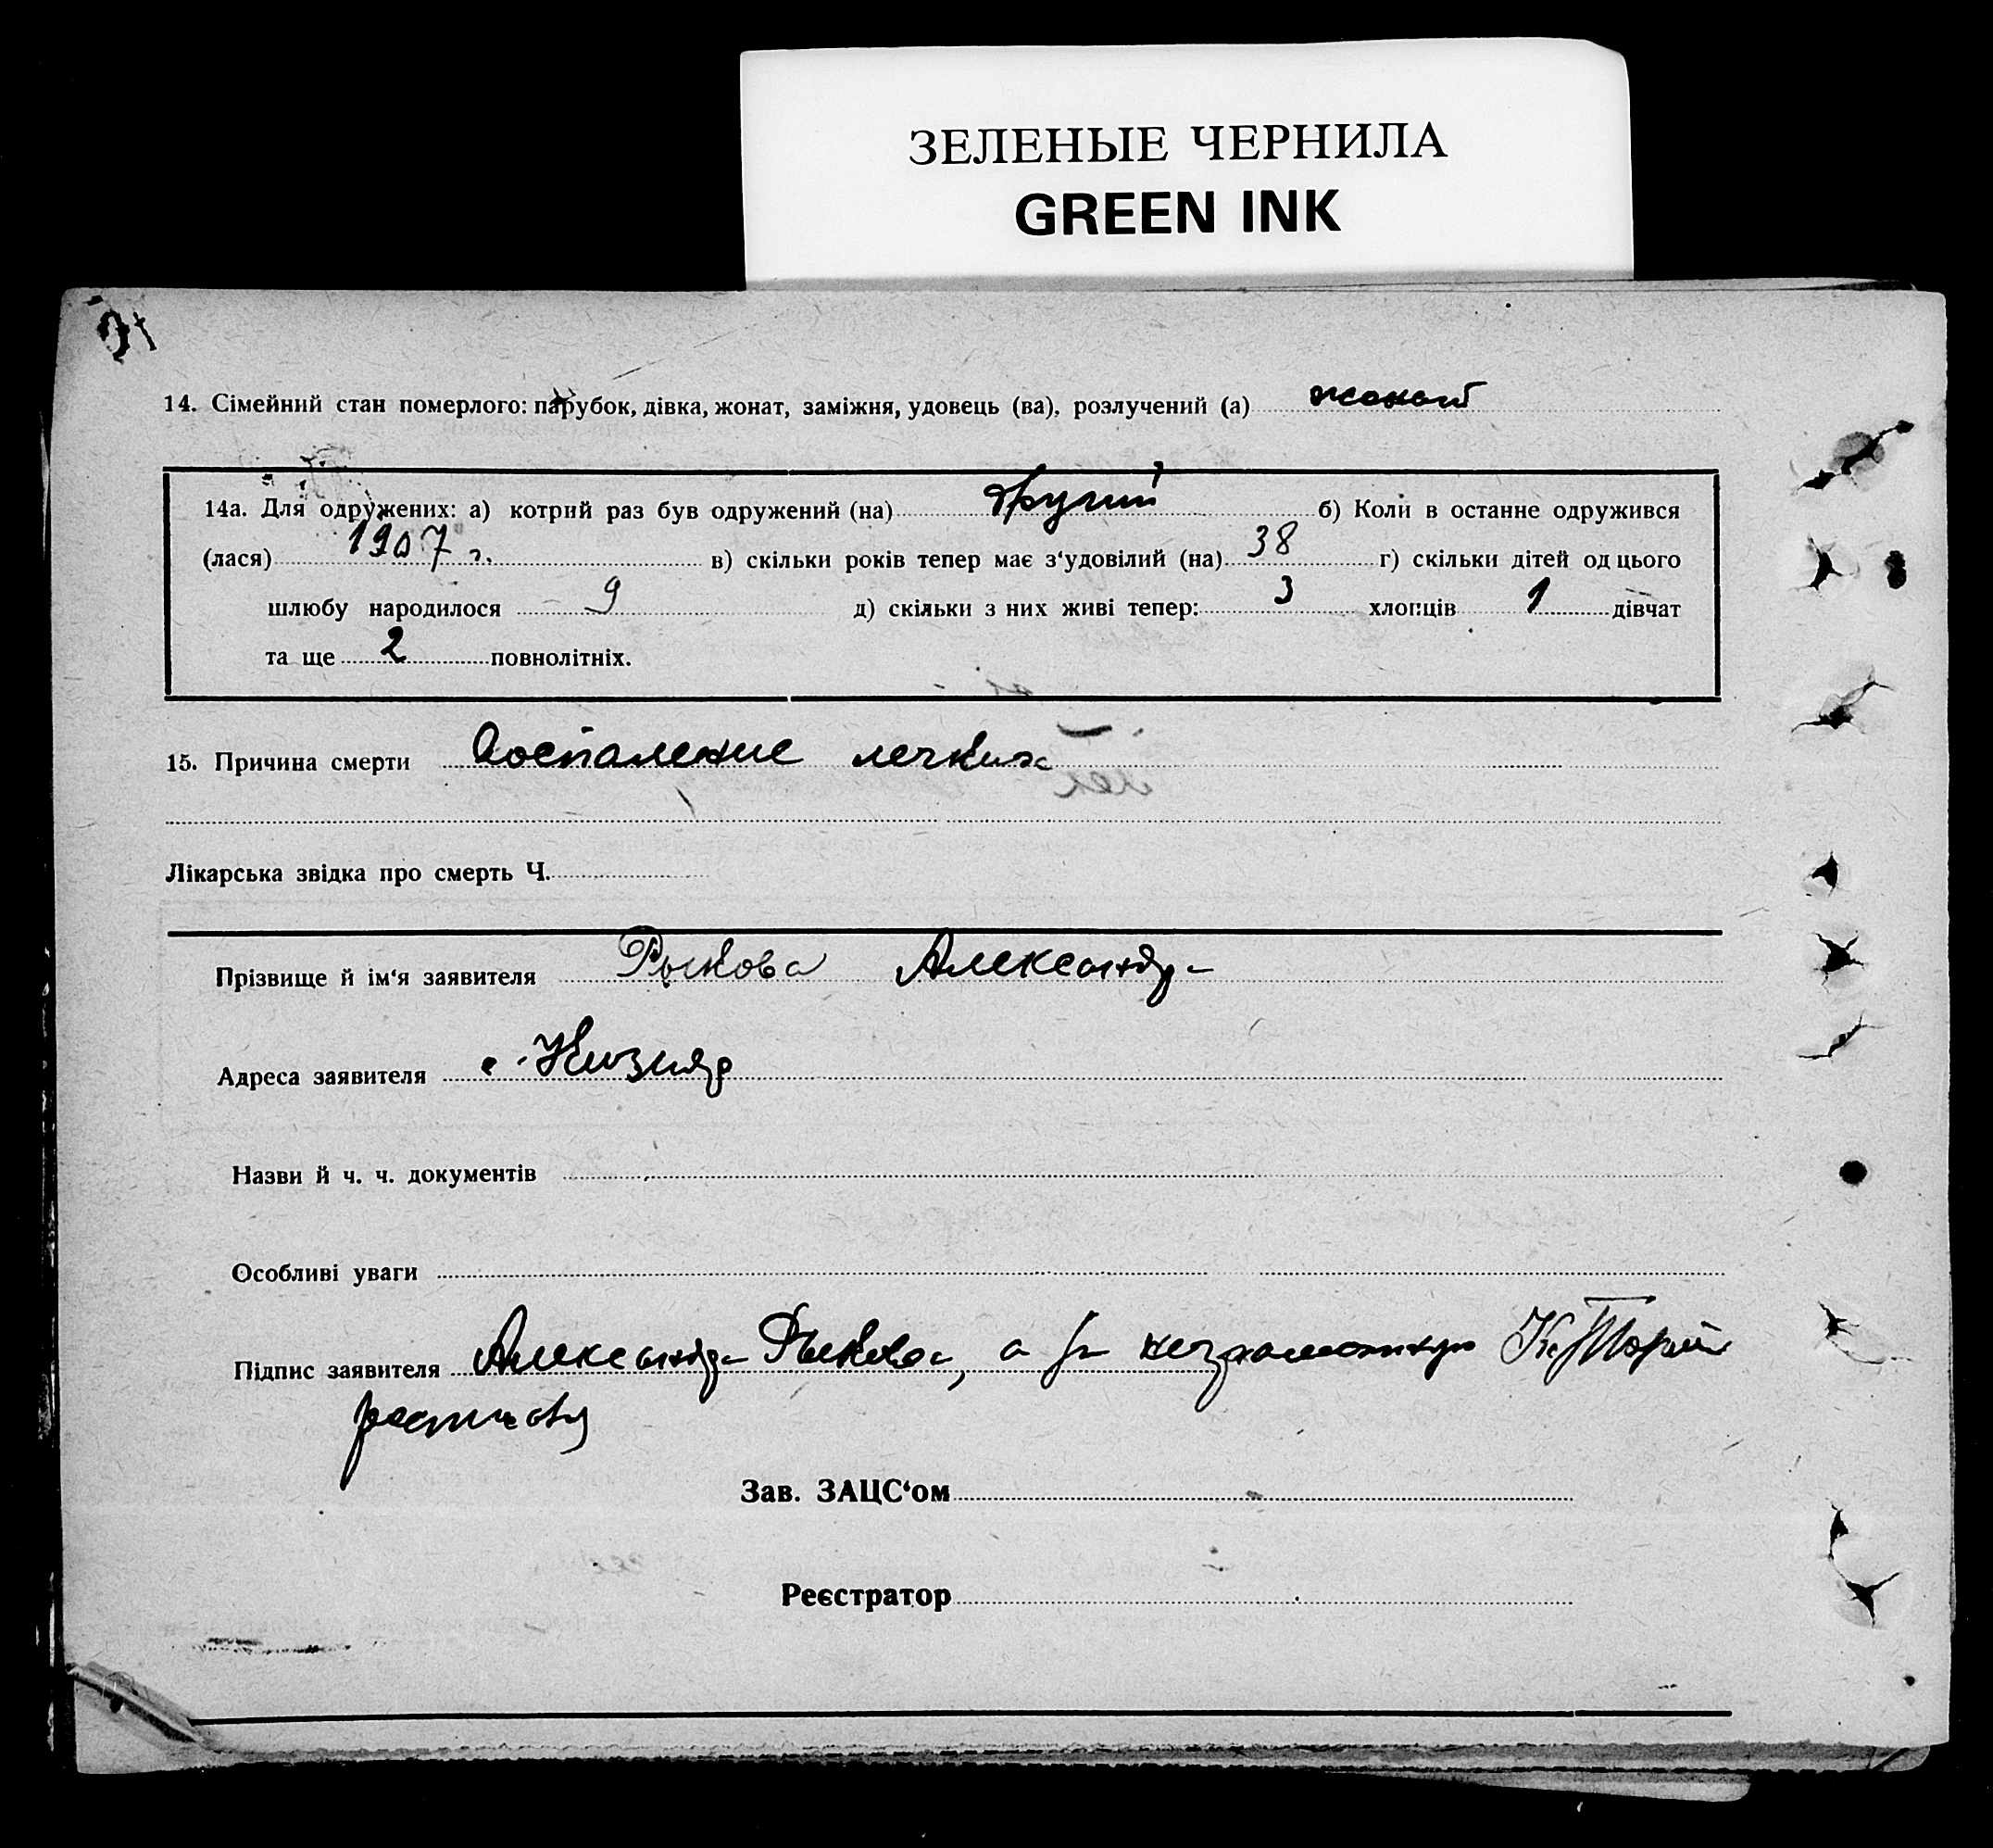 ЗЕЛЕНЫЕ ЧЕРНИЛА
GREEN INK
14. Сімейний стан померлого: парубок, дівка, жонат, заміжня, удовець (ва), розлучений (а) жонат
14а. Для одружених: а) котрий раз був одружений (на) другий б) Коли в останне одружився
(лася) 1907 г. в) скільки років тепер має з‘удовілий (на) 38 г) скільки дітей од цього
шлюбу народилося 9 д) скільки з них живі тепер: 3 хлопців 1 дівчат
та ще 2 повнолітніх.
15. Причина смерти Воспаление легких
Лікарська звідка про смерть Ч.
Прізвище й ім‘я заявителя Рыкова Александр
Адреса заявителя с. Кизияр
Назви й ч. ч. документів
Особливі уваги
Підпис заявителя Александр Рыкова, а за неграмотную
Зав. ЗАЦС‘ом
Реєстратор